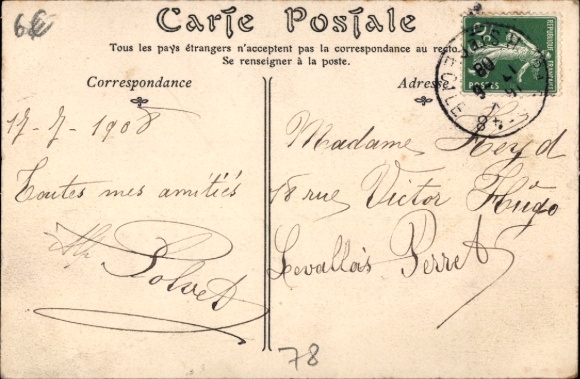 6€
Carte Postale
Tous les pays étrangers n'acceptent pas la correspondance au recto.
Se renseigner à la poste.
Correspondance
17-7-1908
Toutes mes amitiés
Adresse
Madame Heyd
18 rue Victor Hugo
Levallois Perret
78